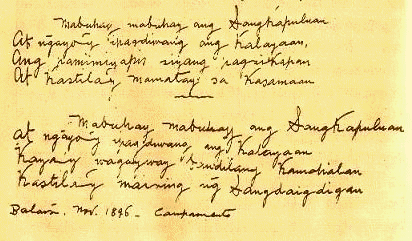 Mabuhay mabuhay ang Sangkapuluan
At ngayo'y ipagdiwang ang kalayaan,
Ang paminiyapis siyang pagsikapan
At Kastila'y mamatay sa kasamaan
Mabuhay mabuhay ang Sangkapuluan
At ngayo'y ipagdiwang ang Kalayaan
Kaya't wagayway bandilang Kamahalan
Kastila'y maining ng Sangdaigdigan
Balara, Nov. 1896 - Campamento